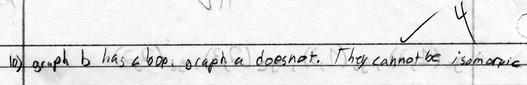 4
10) graph b has a loop, graph a does not. They cannot be isomorpic